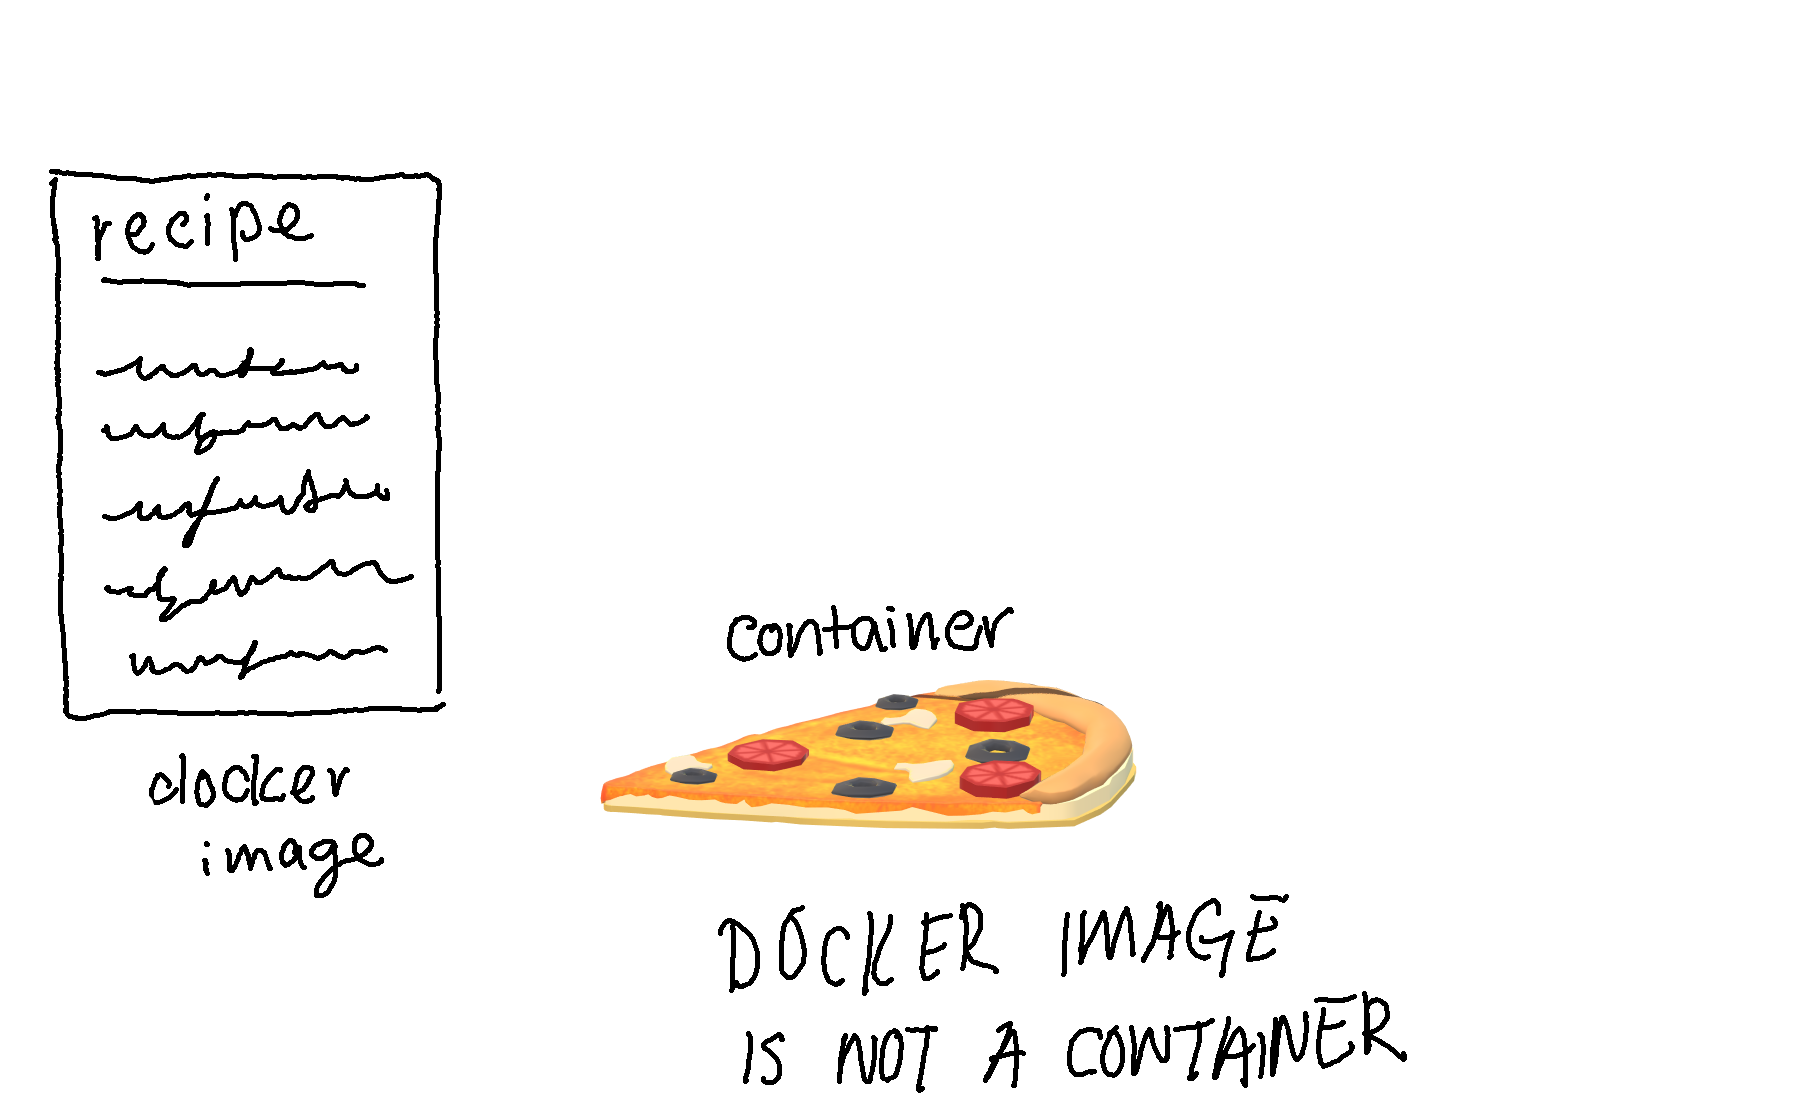 recipe
docker
image
container
DOCKER IMAGE
IS NOT A CONTAINER